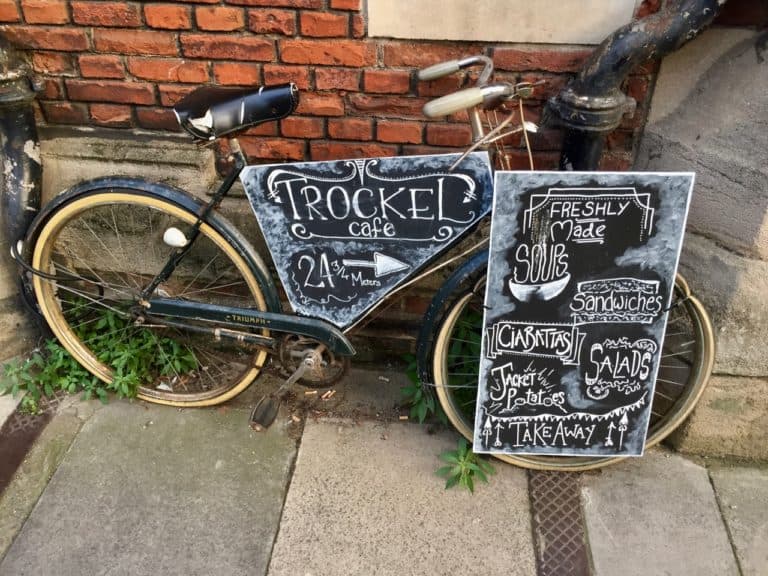 TROCKEL
cafe
24 3/4 Meters
TRIUMPH
FRESHLY
Made
SOUPS
Sandwiches
CIABATTAS
SALADS
JACKET
POTATOES
TAKE AWAY